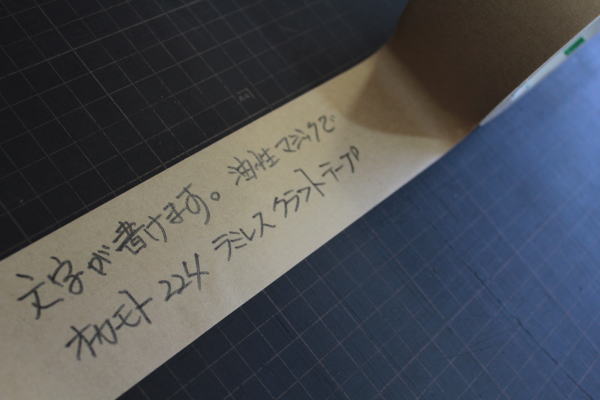 文字が書けます。油性マジックで
オカモト 224 ラミレス クラフトテープ